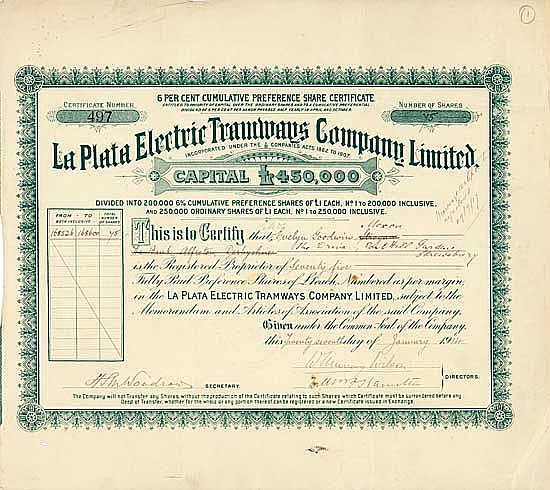 1
6 PER CENT CUMULATIVE PREFERENCE SHARE CERTIFICATE.
ENTITLED TO PRIORITY OF CAPITAL OVER THE ORDINARY SHARES AND TO A CUMULATIVE PREFERENTIAL
DIVIDEND OF 6 PER CENT PER ANNUM PAYABLE HALF YEARLY IN APRIL AND OCTOBER.
CERTIFICATE NUMBER
497
NUMBER OF SHARES
75
La Plata Electric Tramways Company Limited.
INCORPORATED UNDER THE COMPANIES ACTS 1862 TO 1907
CAPITAL £450,000
DIVIDED INTO 200,000 6% CUMULATIVE PREFERENCE SHARES OF £1 EACH, Nº 1 TO 200,000 INCLUSIVE,
AND 250,000 ORDINARY SHARES OF £1 EACH, Nº 1 TO 250,000 INCLUSIVE.
FROM - TO
BOTH INCLUSIVE
TOTAL NUMBER OF SHARES
168526 168600 75
This is to Certify that Evelyn Goodwin
Derbyshire
Shrewsbury
is the Registered Proprietor of Seventy five
Fully Paid Preference Shares of £1 each, Numbered as per margin,
in the LA PLATA ELECTRIC TRAMWAYS COMPANY, LIMITED, subject to the
Memorandum and Articles of Association of the said Company.
Given under the Common Seal of the Company,
this Twenty seventh day of January 191
DIRECTORS.
SECRETARY.
The Company will not Transfer any Shares, without the production of the Certificate relating to such Shares which Certificate must be surrendered before any
Deed of Transfer, whether for the whole or any portion thereof can be registered or a new Certificate issued in Exchange.